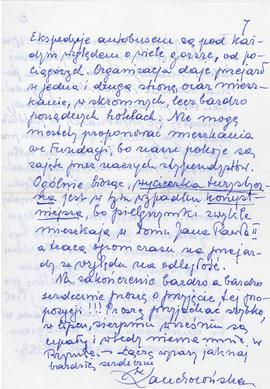 7
Ekspedycje autobusem są pod każ-
dym względem o wiele gorsze, od po-
ciągowych. Organizacja daje przejazd
w jedną i drugą stronę oraz miesz-
kanie, w skromnych, lecz bardzo
porządnych hotelach. Nie mogą
niestety proponować mieszkania
w Fundacji, bo nasze pokoje są
zajęte przez naszych stypendystów.
Ogólnie biorąc, wycieczka turystycz-
na jest w tym wypadku korzyst-
niejsza, bo pielgrzymki zwykle
mieszkają w domu Jana Pawła II
a tracą ogrom czasu na przejaz-
dy ze względu na odległość.
Na zakończenie bardzo a bardzo
serdecznie proszę o przyjęcie tej pro-
pozycji!!! Proszę przyjechać szybko,
w lipcu, sierpniu wrześniu są
upały i wtedy niema mnie w
Rzymie. — Łączę wyrazy jak naj
bardziej serdeczne
Lanckorońska